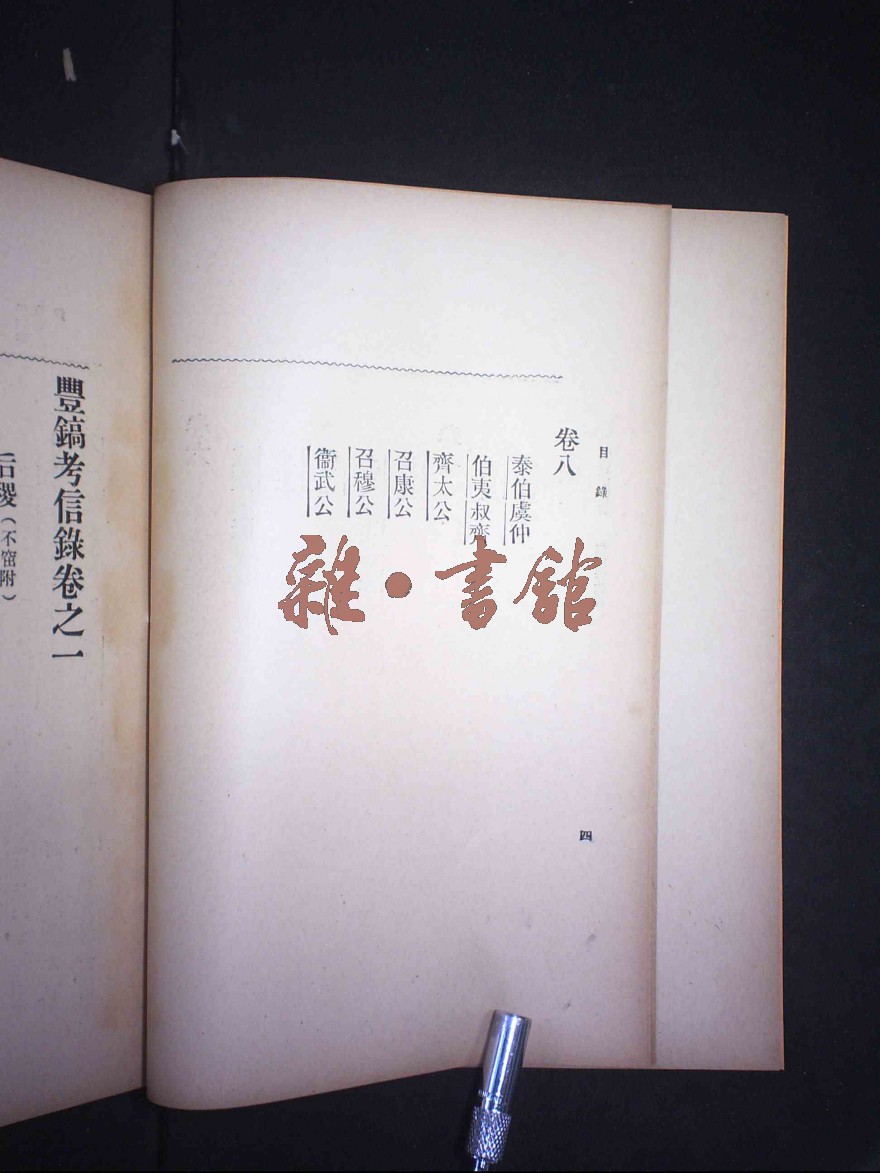 目錄
卷八
泰伯虞仲
伯夷叔齊
齊太公
召康公
召穆公
衞武公
四
雜·書館
豐鎬考信錄卷之一
后稷(不窋附)